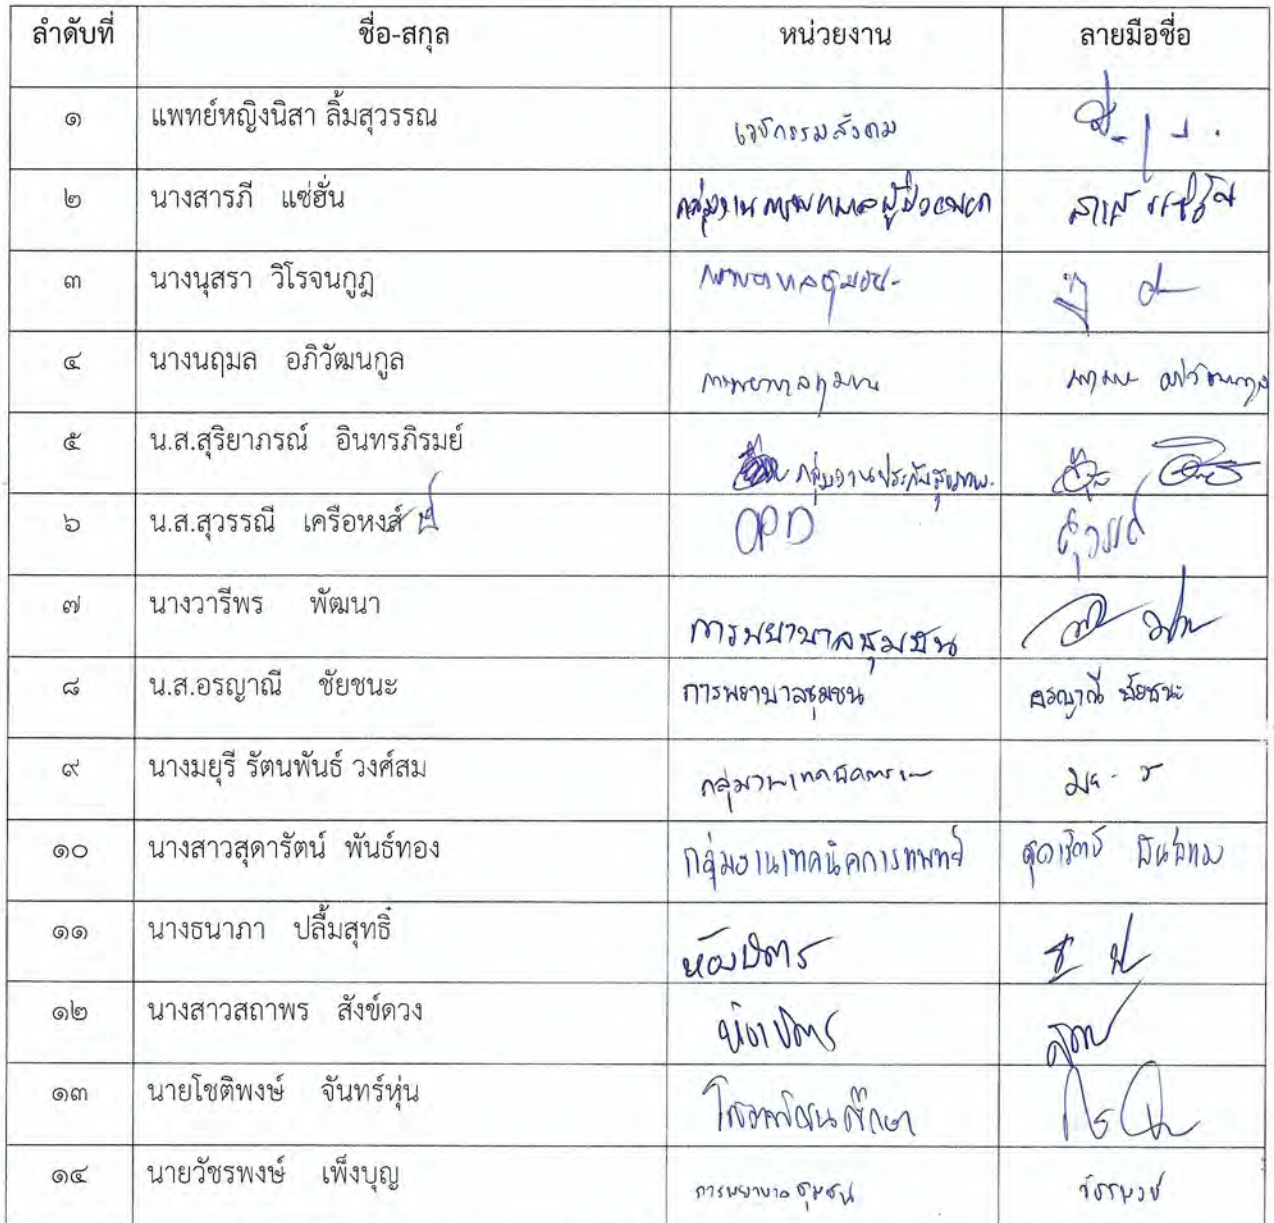 ลำดับที่ ชื่อ-สกุล หน่วยงาน ลายมือชื่อ
๑ แพทย์หญิงนิสา ลิ้มสุวรรณ เวชกรรมสังคม
๒ นางสารภี แซ่ฮั่น กลุ่มงานการพยาบาลผู้ป่วยนอก สารภี แซ่ฮั่น
๓ นางนุสรา วิโรจนกูฏ การพยาบาลชุมชน
๔ นางนฤมล อภิวัฒนกูล การพยาบาลชุมชน นฤมล อภิวัฒนกูล
๕ น.ส.สุริยาภรณ์ อินทรภิรมย์ กลุ่มงานประกันสุขภาพ
๖ น.ส.สุวรรณี เครือหงส์ OPD สุวรรณี
๗ นางวารีพร พัฒนา การพยาบาลชุมชน
๘ น.ส.อรญาณี ชัยชนะ การพยาบาลชุมชน อรญาณี ชัยชนะ
๙ นางมยุรี รัตนพันธ์ วงศ์สม กลุ่มงานเทคนิคการ
๑๐ นางสาวสุดารัตน์ พันธ์ทอง กลุ่มงานเทคนิคการแพทย์ สุดารัตน์ พันธ์ทอง
๑๑ นางธนาภา ปลื้มสุทธิ์ ห้องบัตร
๑๒ นางสาวสถาพร สังข์ดวง ห้องบัตร
๑๓ นายโชติพงษ์ จันทร์หุ่น
๑๔ นายวัชรพงษ์ เพ็งบุญ การพยาบาลชุมชน วัชรพงษ์